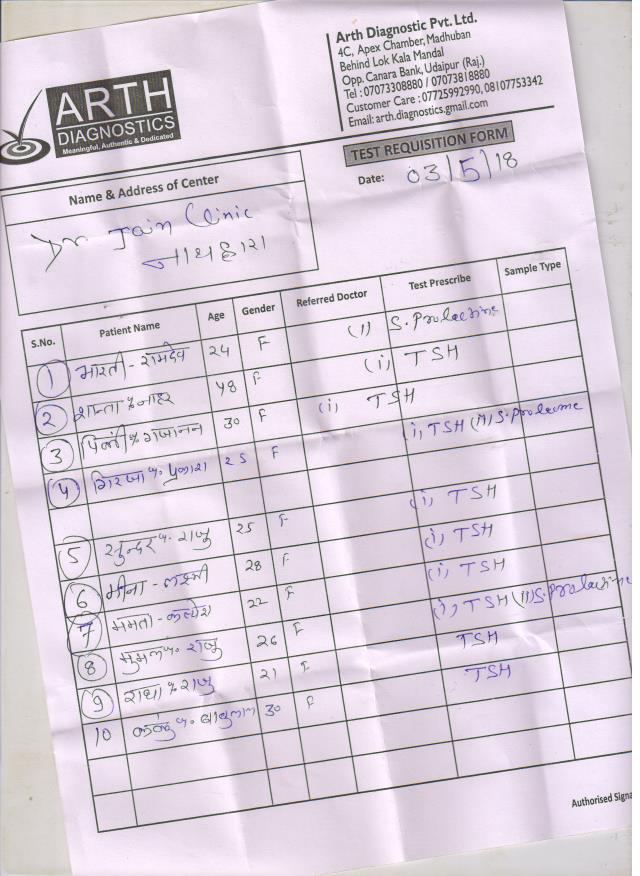 ARTH
DIAGNOSTICS
Meaningful, Authentic & Dedicated
Arth Diagnostic Pvt. Ltd.
4C, Apex Chamber, Madhuban
Behind Lok Kala Mandal
Opp. Canara Bank, Udaipur (Raj.)
Tel : 07073308880 / 07073818880
Customer Care : 07725992990, 08107753342
Email: arth.diagnostics.gmail.com
TEST REQUISITION FORM
Date: 03/5/18
Name & Address of Center
Dr Jain Clinic
S.No. Patient Name Age Gender Referred Doctor Test Prescribe Sample Type
1 भारती - रामदेव 24 F (I) S. Prolactine
2 शान्ता % नाहर 48 F (i) TSH
3 पिंकी % गजानन 30 F (i) TSH
4 गिरजा % प्रकाश 25 F (i) TSH (II) S. Prolactine
5 सुन्दर % राजु 25 F (i) TSH
6 मीना - लक्ष्मी 28 F (i) TSH
7 ममता - कल्पेश 22 F (i) TSH
8 % राजु 26 F (i) TSH (II) S. Prolactine
9 राधा % राजु 21 F TSH
10 % बाबुलाल 30 F TSH
Authorised Signa